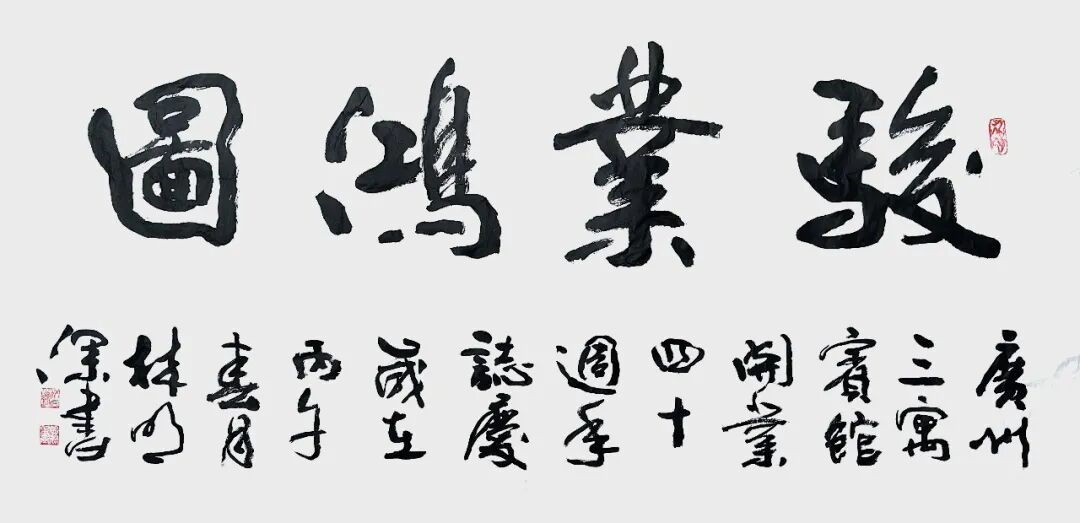 駿業鴻圖
廣州
三寓
賓館
開業
四十
週年
誌慶
歲在
丙午
春月
林明
深書